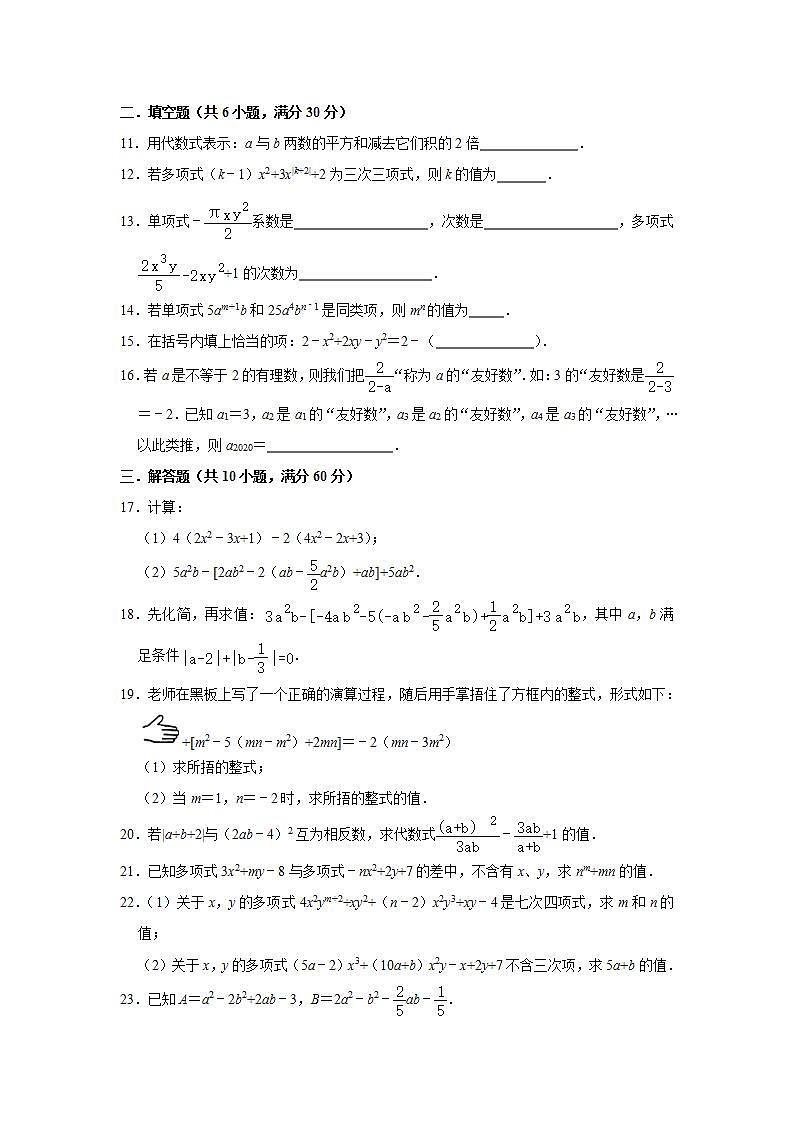 二．填空题（共 6 小题，满分 30 分）
11．用代数式表示：a 与 b 两数的平方和减去它们积的 2 倍＿＿＿＿＿＿＿．
12．若多项式（k﹣1）x²+3x^|k+2|+2 为三次三项式，则 k 的值为＿＿＿＿．
13．单项式﹣πxy²/2系数是＿＿＿＿＿＿＿＿＿，次数是＿＿＿＿＿＿＿＿＿，多项式
2x³y/5-2xy²+1 的次数为＿＿＿＿＿＿＿＿＿．
14．若单项式 5a^(m+1)b 和 25a⁴b^(n﹣1) 是同类项，则 mⁿ的值为＿＿＿．
15．在括号内填上恰当的项：2﹣x²+2xy﹣y²＝2﹣（＿＿＿＿＿＿＿）．
16．若 a 是不等于 2 的有理数，则我们把2/(2-a)“称为 a 的“友好数”．如：3 的“友好数是2/(2-3)
＝﹣2．已知 a₁＝3，a₂是 a₁的“友好数”，a₃是 a₂的“友好数”，a₄是 a₃的“友好数”，…
以此类推，则 a₂₀₂₀＝＿＿＿＿＿＿＿＿＿．
三．解答题（共 10 小题，满分 60 分）
17．计算：
（1）4（2x²﹣3x+1）﹣2（4x²﹣2x+3）；
（2）5a²b﹣[2ab²﹣2（ab﹣5/2a²b）+ab]+5ab²．
18．先化简，再求值：3a²b-[-4ab²-5(-ab²-2/5a²b)+1/2a²b]+3a²b，其中 a，b 满
足条件|a-2|+|b-1/3|=0．
19．老师在黑板上写了一个正确的演算过程，随后用手掌捂住了方框内的整式，形式如下：
+[m²﹣5（mn﹣m²）+2mn]＝﹣2（mn﹣3m²）
（1）求所捂的整式；
（2）当 m＝1，n＝﹣2时，求所捂的整式的值．
20．若|a+b+2|与（2ab﹣4）²互为相反数，求代数式(a+b)²/3ab﹣3ab/(a+b)+1 的值．
21．已知多项式 3x²+my﹣8 与多项式﹣nx²+2y+7 的差中，不含有 x、y，求 nᵐ+mn 的值．
22．（1）关于 x，y 的多项式 4x²y^(m+2)+xy²+（n﹣2）x²y³+xy﹣4 是七次四项式，求 m 和 n 的
值；
（2）关于 x，y 的多项式（5a﹣2）x³+（10a+b）x²y﹣x+2y+7 不含三次项，求 5a+b 的值．
23．已知 A＝a²﹣2b²+2ab﹣3，B＝2a²﹣b²﹣2/5ab﹣1/5．